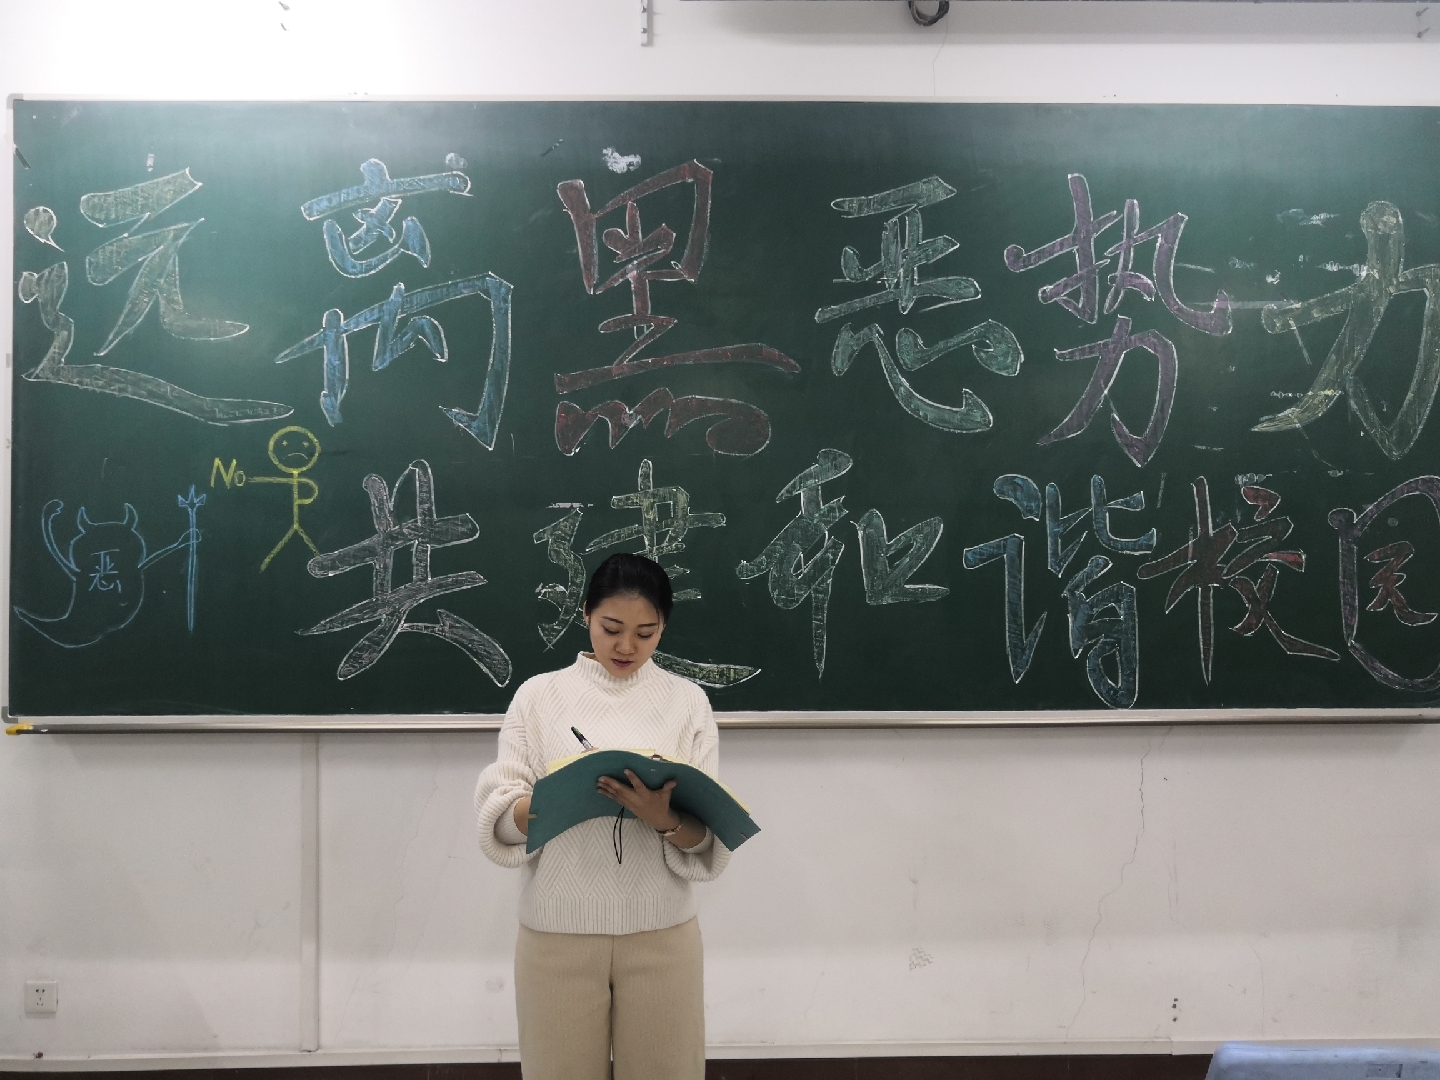 远离黑恶势力
No
恶
共建和谐校园